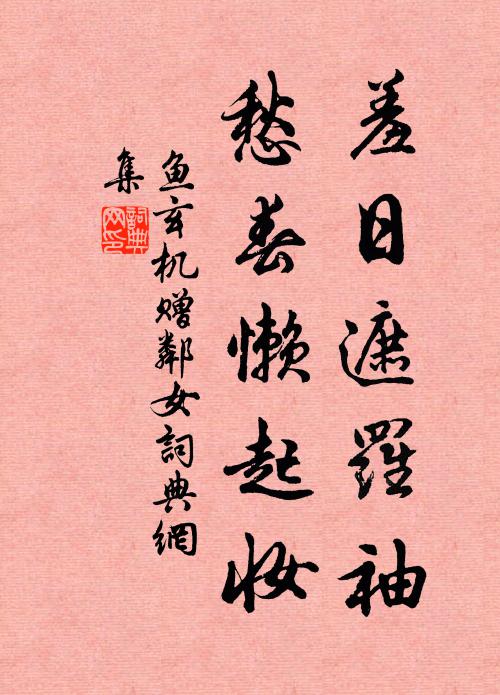 羞日遮羅袖
愁春懶起妝
鱼玄机赠鄰女詞典網
集
詞典
网印